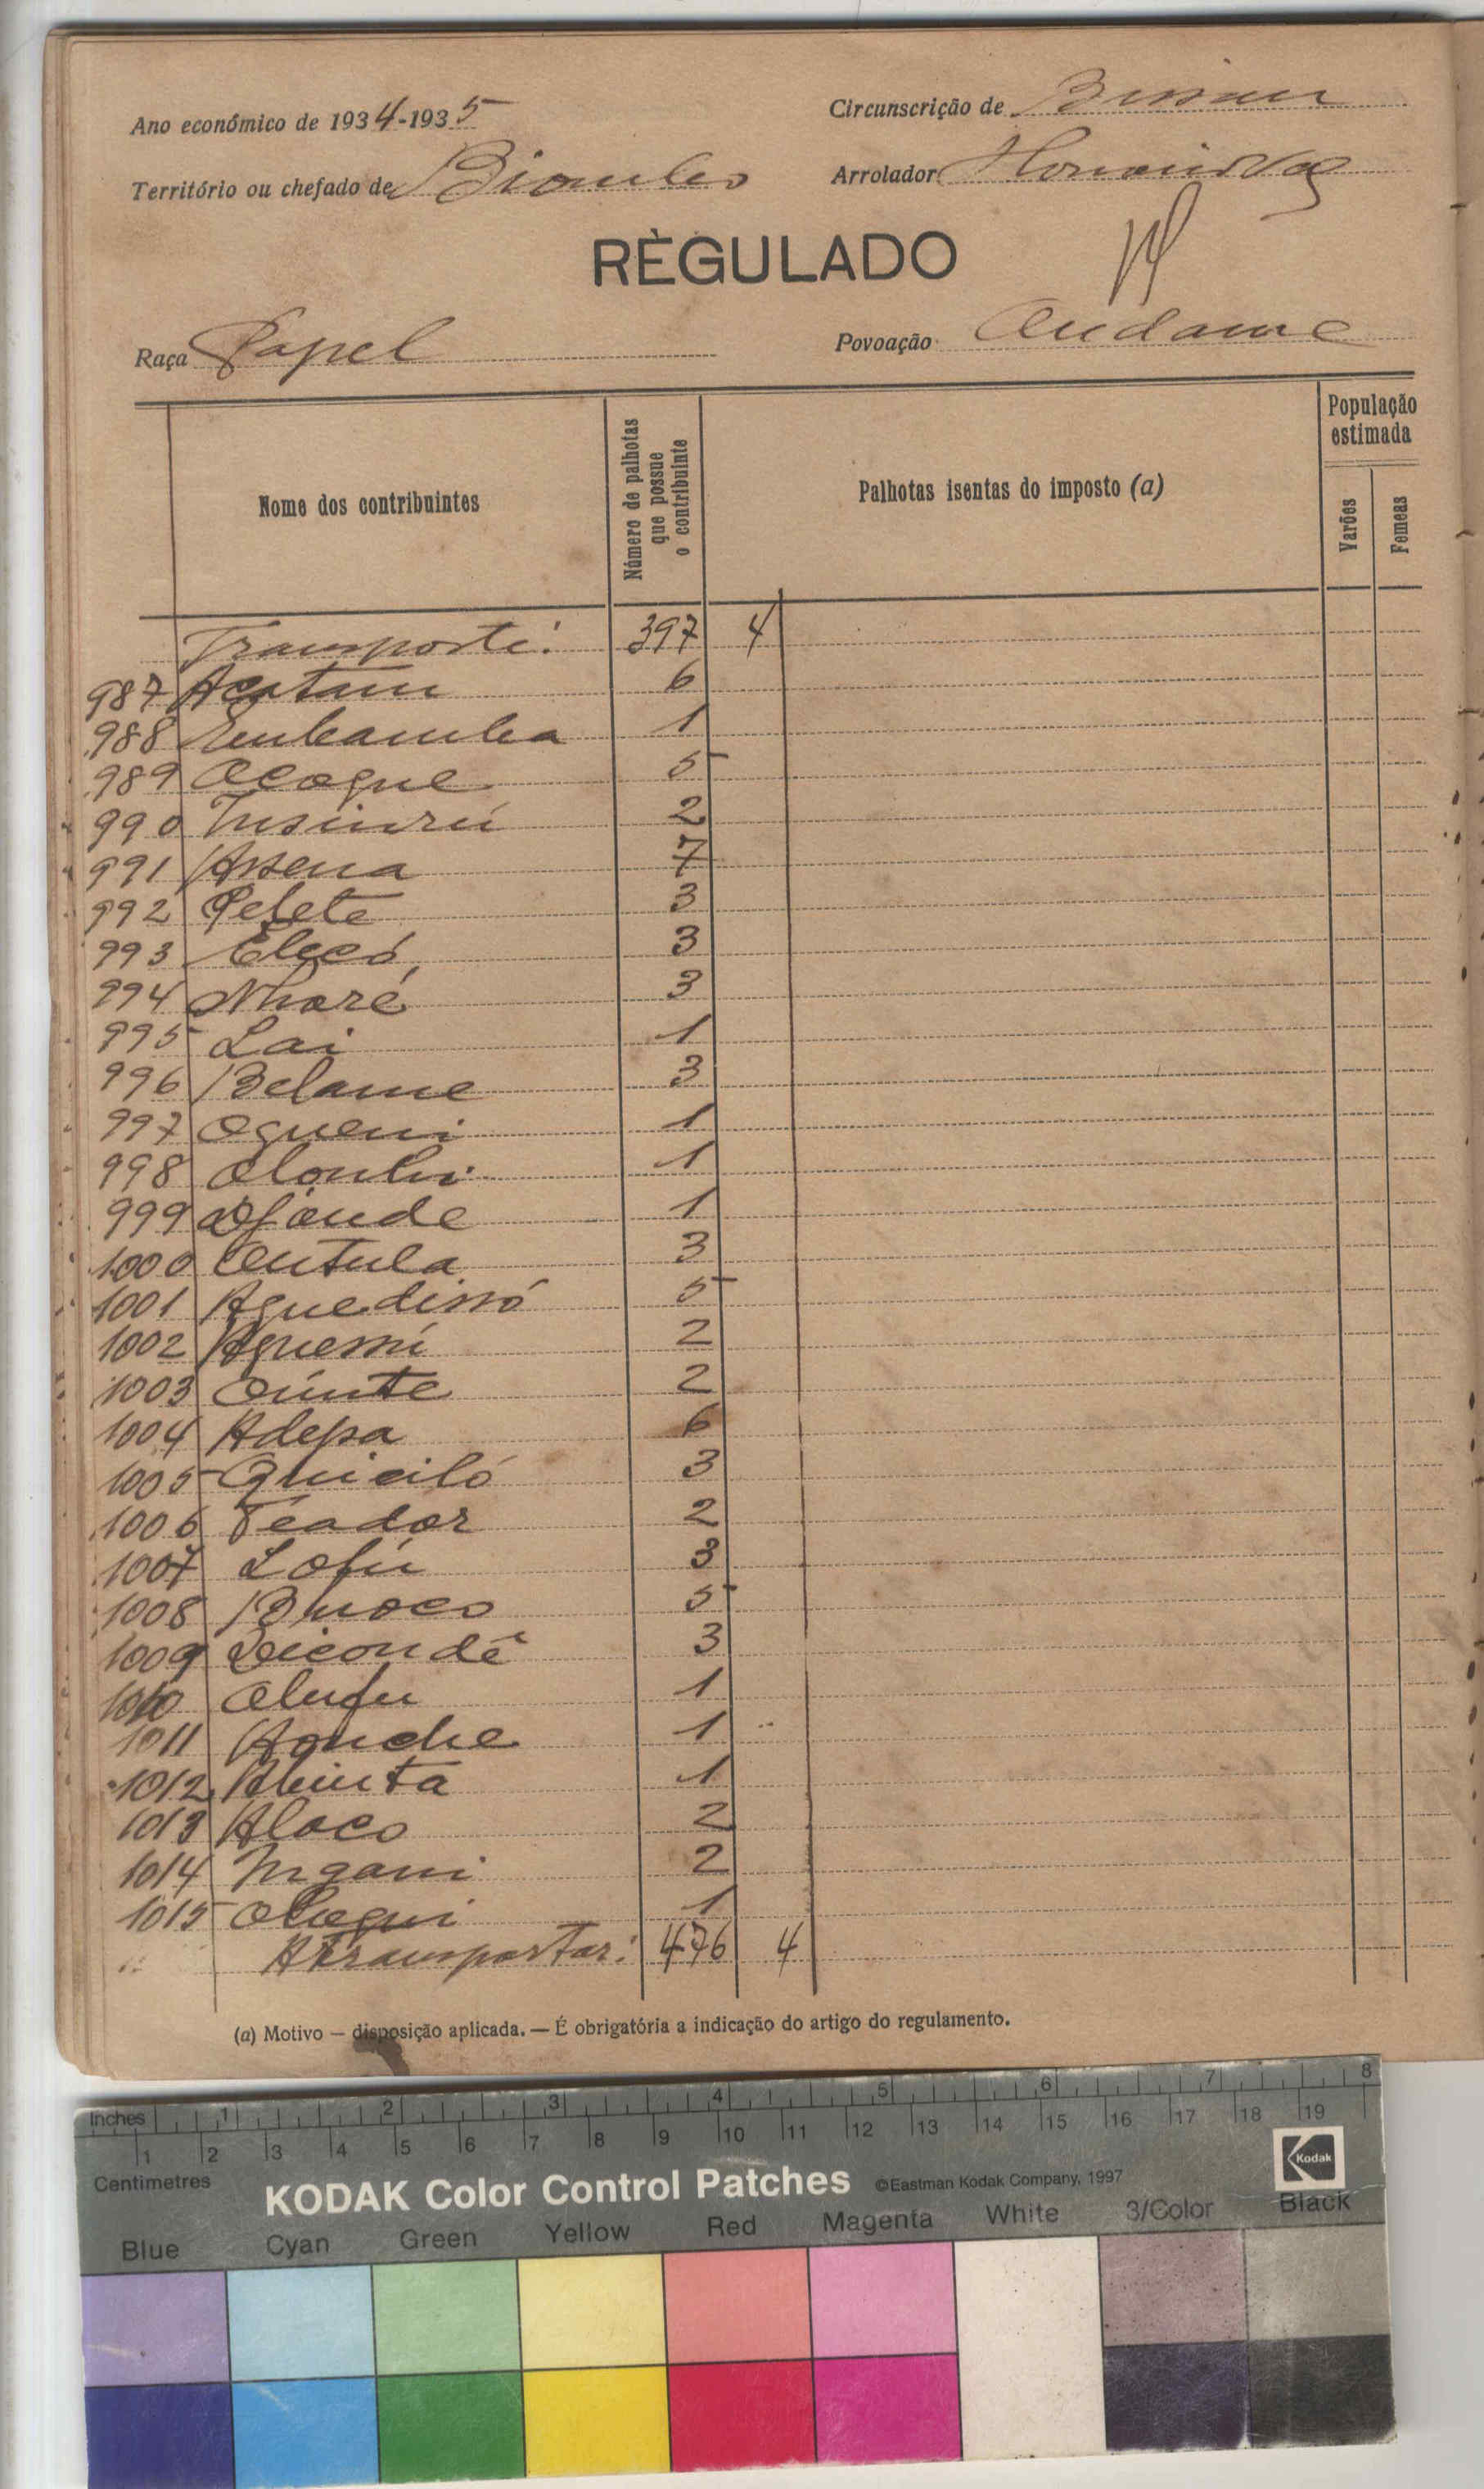 Ano económico de 1934-1935
Circunscrição de Bissau
Território ou chefado de Biombo
Arrolador
RÈGULADO
Raça Papel
Povoação Andame
Nome dos contribuintes
Número de palhotas que possue o contribuinte
Palhotas isentas do imposto (a)
População estimada
Varões
Femeas
Transporte: 397 4
987 Acatam 6
988 Embamba 1
989 Ocogue 5
990 Insinré 2
991 Assena 7
992 Pelete 3
993 Elecó 3
994 Nharé 3
995 Lai 1
996 Belame 3
997 Ogueni 1
998 Olonbi 1
999 Djonde 1
1000 Centula 3
1001 Aguedissó 5
1002 Aguessú 2
1003 Oúnte 2
1004 Adepa 6
1005 Quiciló 3
1006 Teador 2
1007 Lofú 3
1008 Bnoco 5
1009 Dicondê 3
1010 Olufu 1
1011 Aonche 1
1012 Abinta 1
1013 Aloco 2
1014 Ingani 2
1015 Ologui 1
A transportar: 476 4
(a) Motivo — disposição aplicada. — É obrigatória a indicação do artigo do regulamento.
Inches 1 2 3 4 5 6 7 8
1 2 3 4 5 6 7 8 9 10 11 12 13 14 15 16 17 18 19
Centimetres
KODAK Color Control Patches ©Eastman Kodak Company, 1997
Kodak
Blue Cyan Green Yellow Red Magenta White 3/Color Black